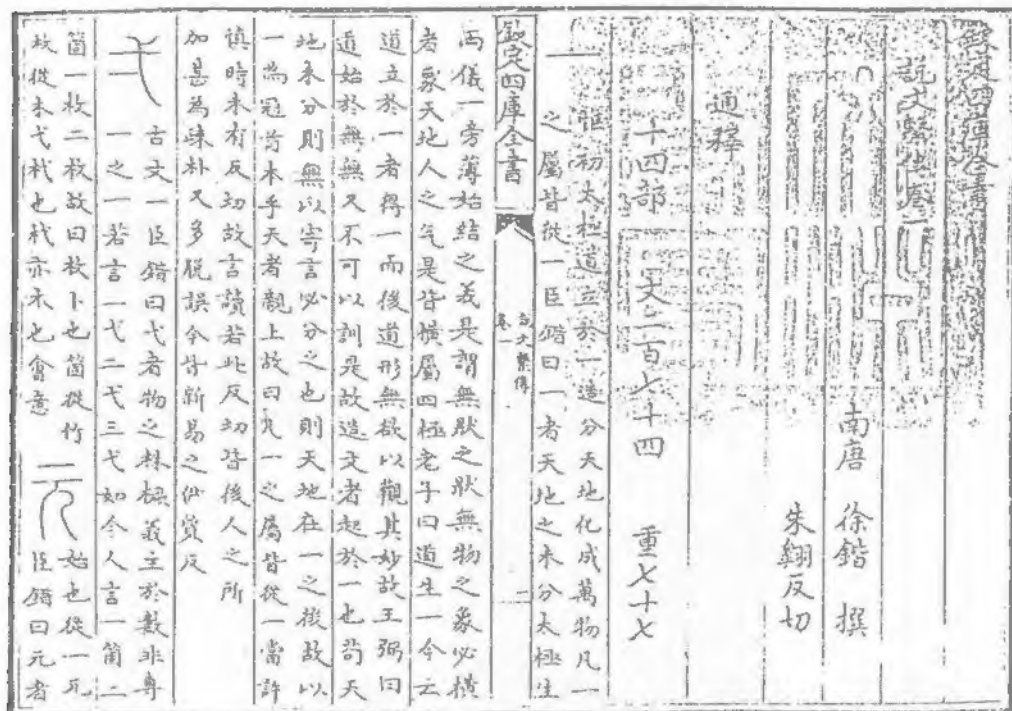 欽定四庫全書
說文繫傳卷一
南唐 徐鍇 撰
朱翱反切
通釋
十四部 文二百七十四 重七十七
一 惟初太極道立於一造分天地化成萬物凡一
之屬皆從一臣鍇曰一者天地之未分太極生
欽定四庫全書
說文繫傳
卷一
二
兩儀一旁薄始結之義是謂無狀之狀無物之象必橫
者象天地人之气是皆橫屬四極老子曰道生一今云
道立於一者得一而後道形無欲以觀其妙故王弼曰
道始於無無又不可以訓是故造文者起於一也苟天
地未分則無以寄言必分之也則天地在一之後故以
一為冠首本乎天者親上故曰凡一之屬皆從一當許
慎時未有反切故言讀若此反切皆後人之所
加甚為疎朴又多脫誤今皆新易之伊質反
弌 古文一臣鍇曰弋者物之株橛義主於數非專
一之一若言一弋二弋三弋如今人言一箇二
箇一枚二枚故曰枚卜也箇從竹
枚從木弋杙也杙亦木也會意
元 始也從一兀
臣鍇曰元者